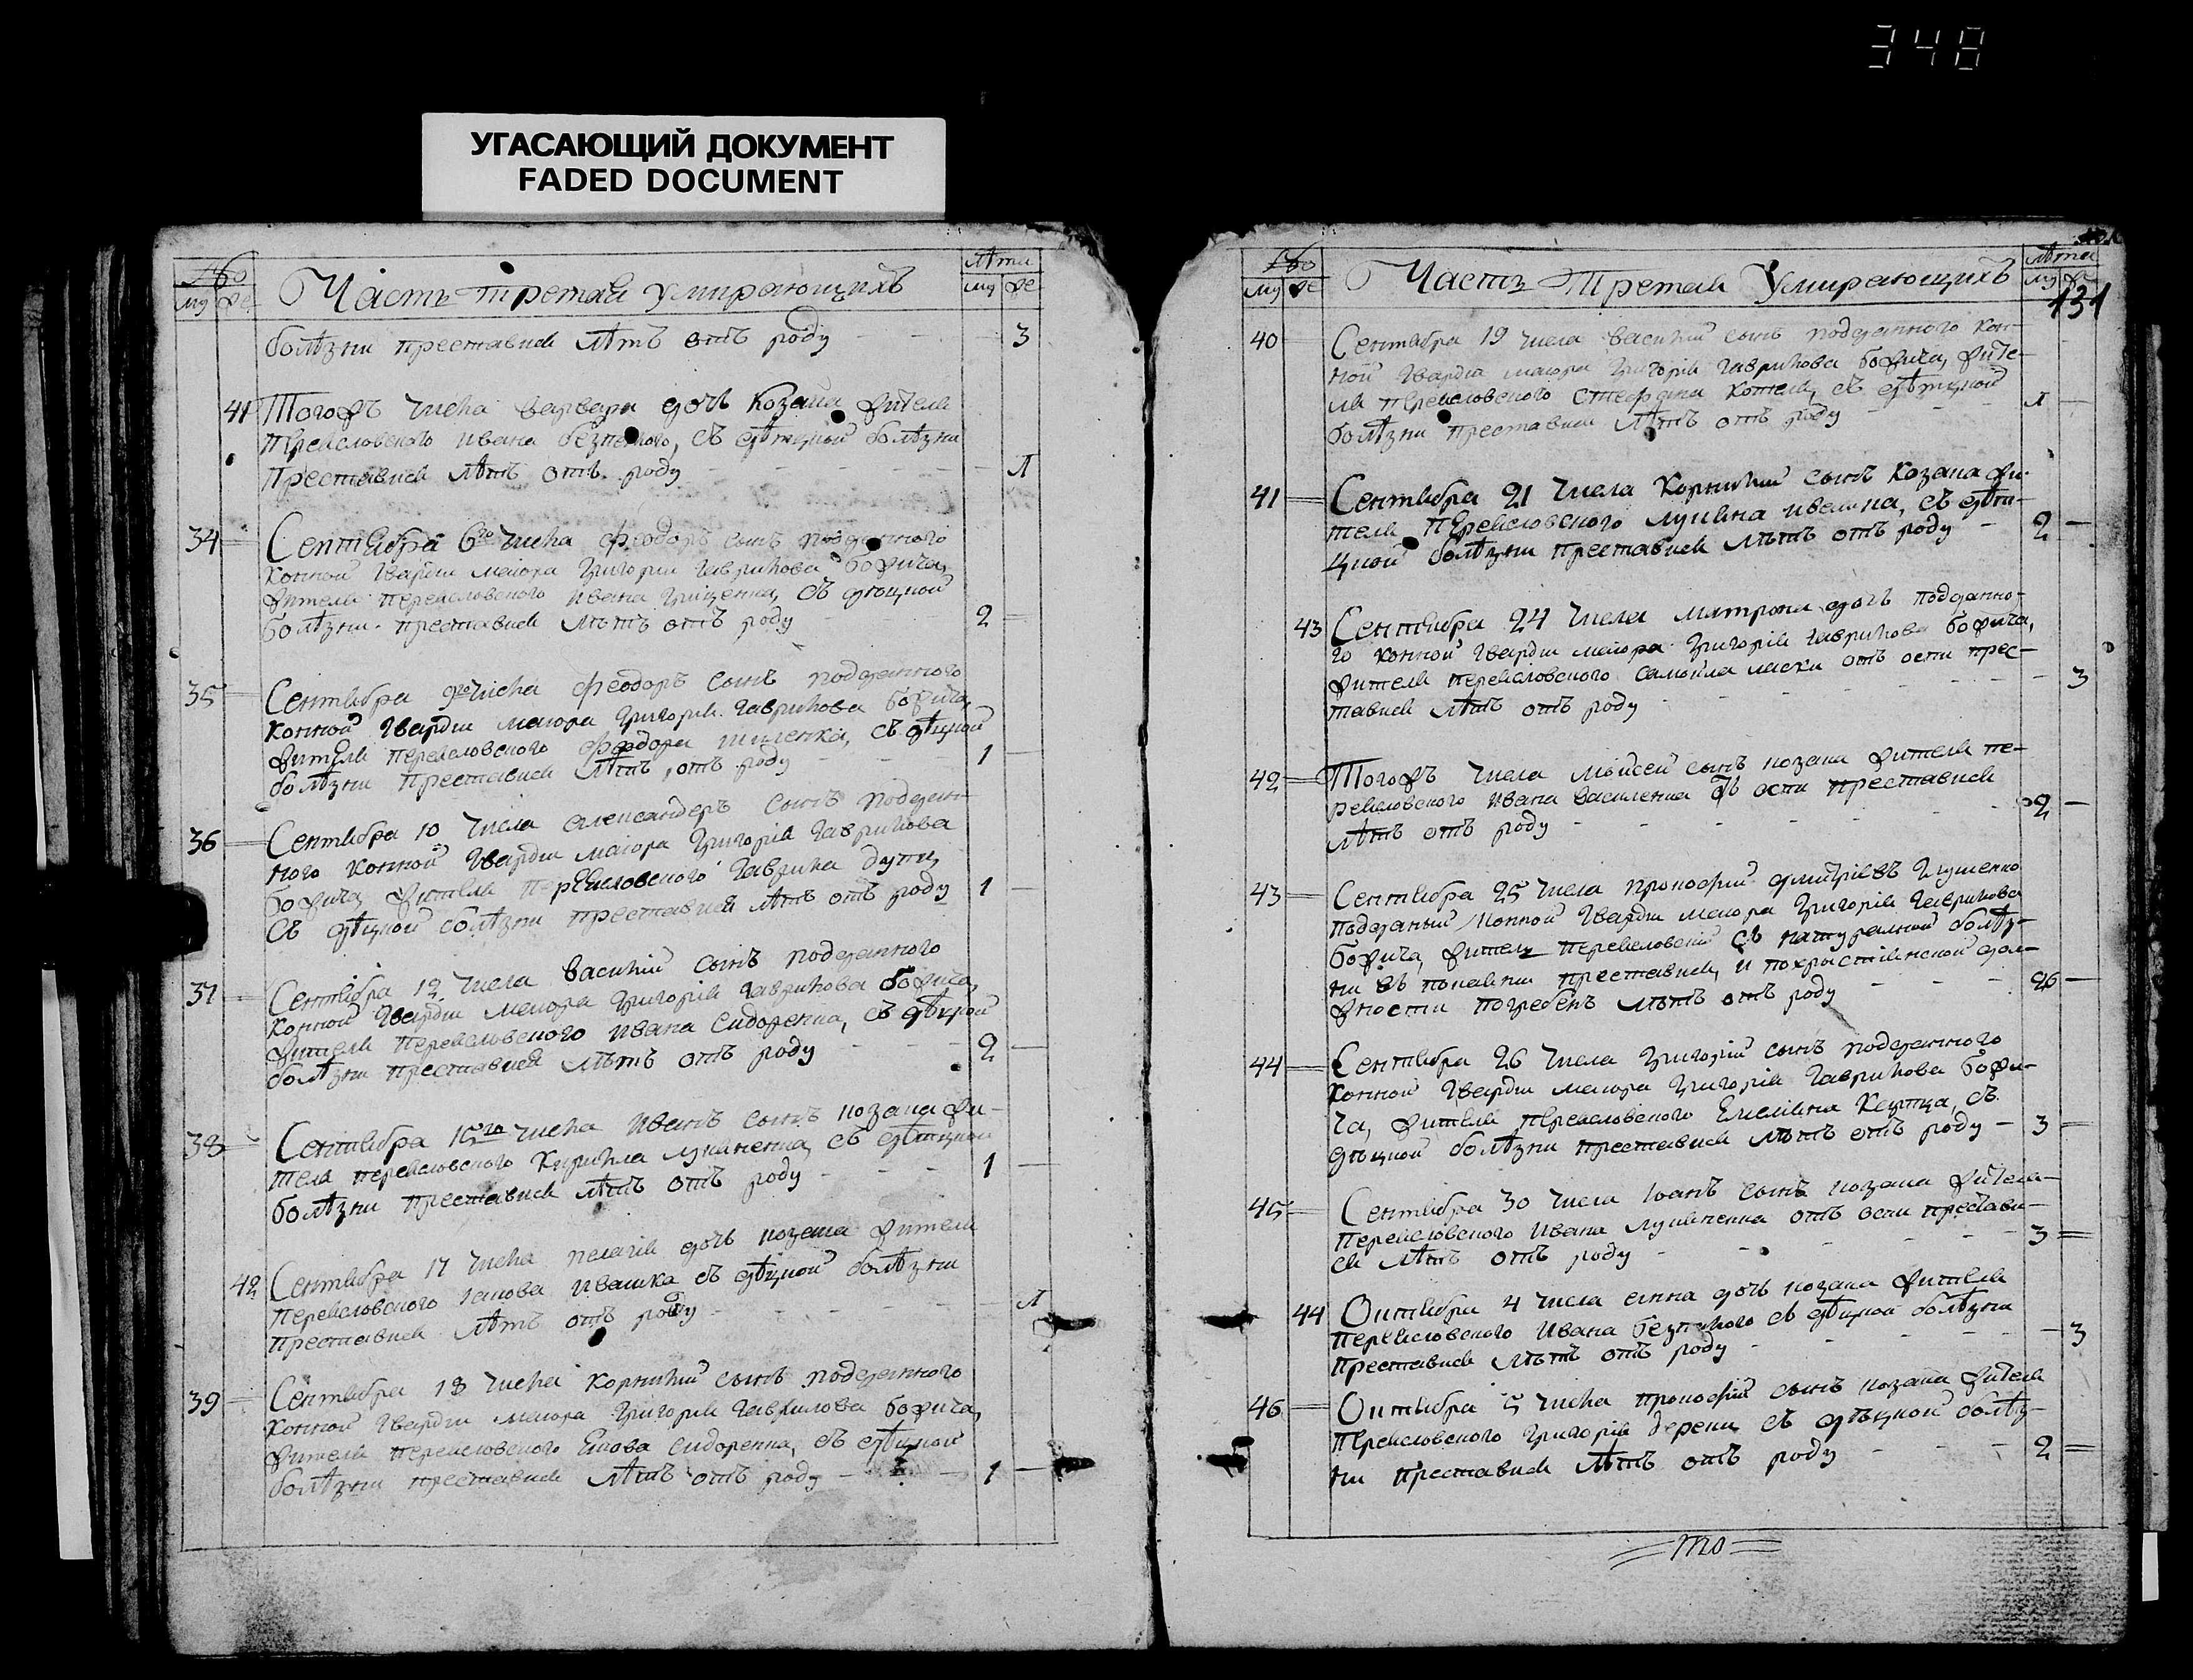 348
УГАСАЮЩИЙ ДОКУМЕНТ
FADED DOCUMENT
Лѣта
му же Часть третая умирающихъ му же
болѣзни преставися лѣтъ отъ роду 3
41 Тогожъ числа варвара дочь козака жителя
переясловского ивана безпалого, съ дѣтцкой болѣзни
преставися лѣтъ отъ роду
34 Сентября 6го числа феодоръ сынъ подданного
конной гвардии маиора григория гаврилова божича,
жителя переясловского ивана грищенка, съ дѣцкой
болѣзни преставися лѣтъ отъ роду 2
35 Сентября 9го числа феодоръ сынъ подданного
конной гвардии маиора григорія гаврилова божича,
жителя переясловского феодора шиленка, съ дѣцкой
болѣзни преставися лѣтъ отъ роду 1
36 Сентября 10 числа александеръ сынъ поддан-
ного конной гвардии маиора григорія гаврилова
божича, жителя переясловского гаврила
съ дѣцкой болѣзни преставися лѣтъ отъ роду 1
37 Сентября 12 числа василий сынъ подданного
конной гвардии маиора григорія гаврилова божича,
жителя переясловского ивана сидоренка, съ дѣцкой
болѣзни преставися лѣтъ отъ роду 2
38 Сентября 15го числа иванъ сынъ козака жи-
теля переясловского кирилла луканенка, съ дѣтцкой
болѣзни преставися лѣтъ отъ роду 1
42 Сентября 17 числа пелагія дочь козака жителя
переясловского якова ивашка съ дѣцкой болѣзни
преставися лѣтъ отъ роду
39 Сентября 18 числа корнилий сынъ подданного
конной гвардии маиора григорія гаврилова божича,
жителя переясловского сидоренка, съ дѣцкой
болѣзни преставися лѣтъ отъ роду 1
Лѣта
му же Часть Третая Умирающихъ му же
131
40 Сентября 19 числа василий сынъ подданного кон-
ной гвардіи маиора григорія гаврилова божича, жите-
ля переясловского стефана котеля, съ дѣтцкой
болѣзни преставися лѣтъ отъ роду
41 Сентября 21 числа корнилий сынъ козака жи-
теля переясловского лукіяна ивашка, съ дѣт-
цкой болѣзни преставися лѣтъ отъ роду 2
43 Сентября 24 числа матрона дочь подданно-
го конной гвардіи маиора григорія гаврилова божича,
жителя переясловского самойла ласки отъ оспи прес-
тавися лѣтъ отъ роду 3
42 Тогожъ числа моисей сынъ козака жителя пе-
реясловского ивана василенка въ оспи преставися
лѣтъ отъ роду 2
43 Сентября 25 числа прокофий дмитріевъ глущенко
подданый конной гвардіи маиора григорія гаврилова
божича, житель переясловский съ натуралной болѣз-
ни въ покаянии преставися, и похристіянской дол-
жности погребенъ лѣтъ отъ роду 26
44 Сентября 26 числа григорій сынъ подданного
конной гвардіи маиора григорія гаврилова божи-
ча, жителя переясловского Емеліяна съ
дѣцкой болѣзни преставися лѣтъ отъ роду 3
45 Сентября 30 числа іоанъ сынъ козака жителя
переясловского ивана лукіяненка отъ оспи престави-
ся лѣтъ отъ роду 3
44 Октября 4 числа анна дочь козака жителя
переясловского ивана безпалого съ дѣцкой болѣзни
преставися лѣтъ отъ роду 3
46 Октября 5 числа прокофій сынъ козака жителя
переясловского григорія дереки съ дѣцкой болѣз-
ни преставися лѣтъ отъ роду 2